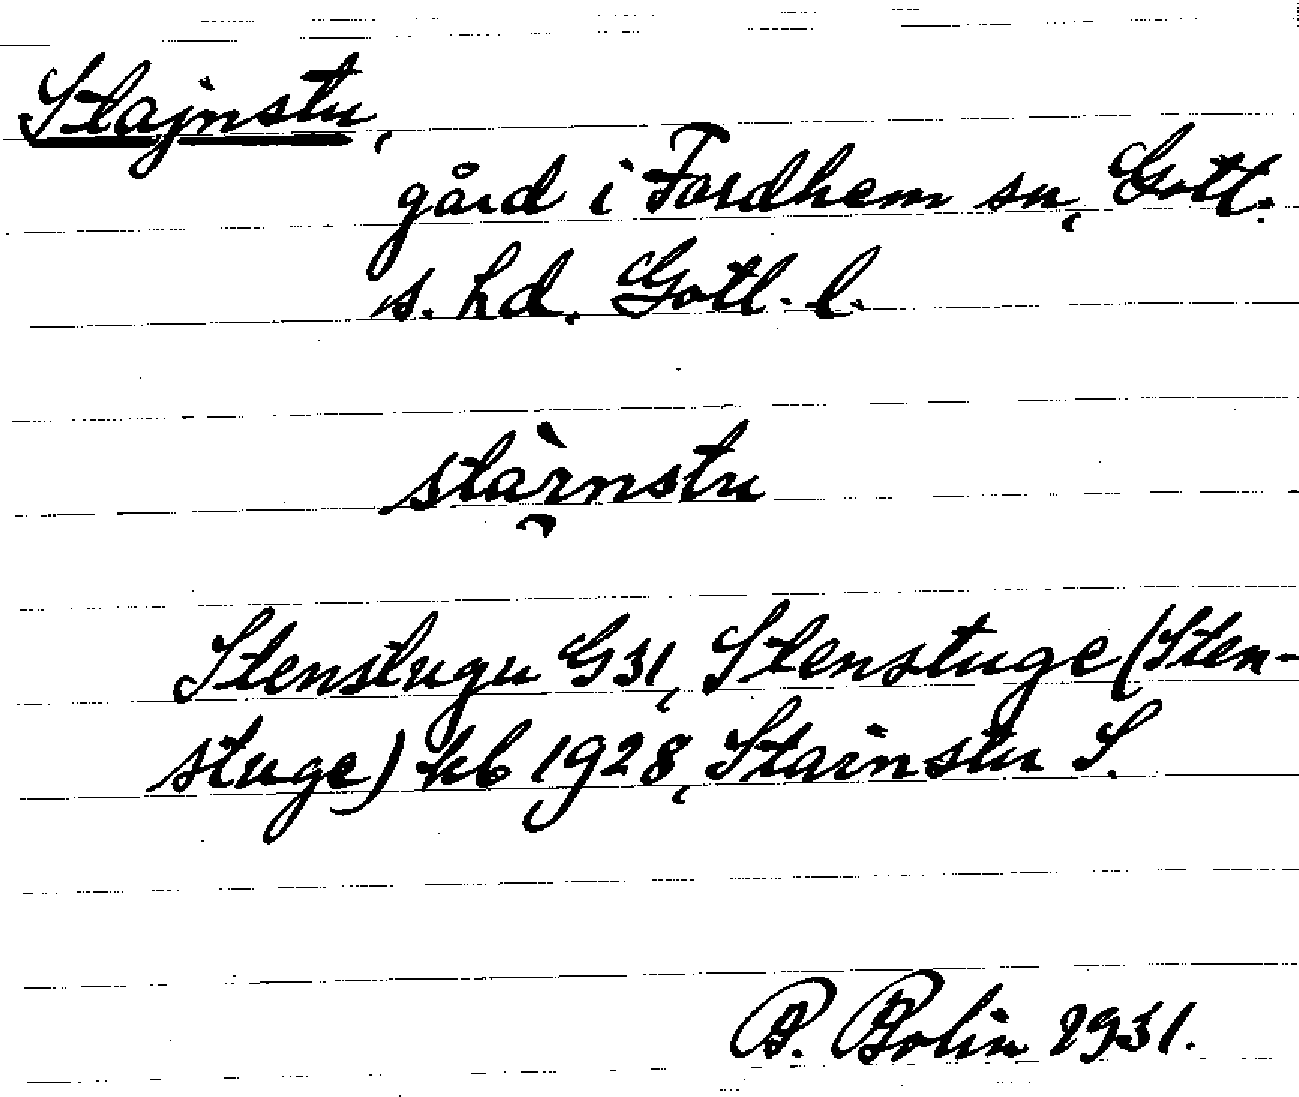 Stajnstu,
gård i Fardhem sn, Gotl.
s. hd. Gotl. l.
staı̯̀nstu
Stenstugu G31, Stenstuge (Sten-
stuge) kb 1928, Stainstu S.
B. Bolin 1931.